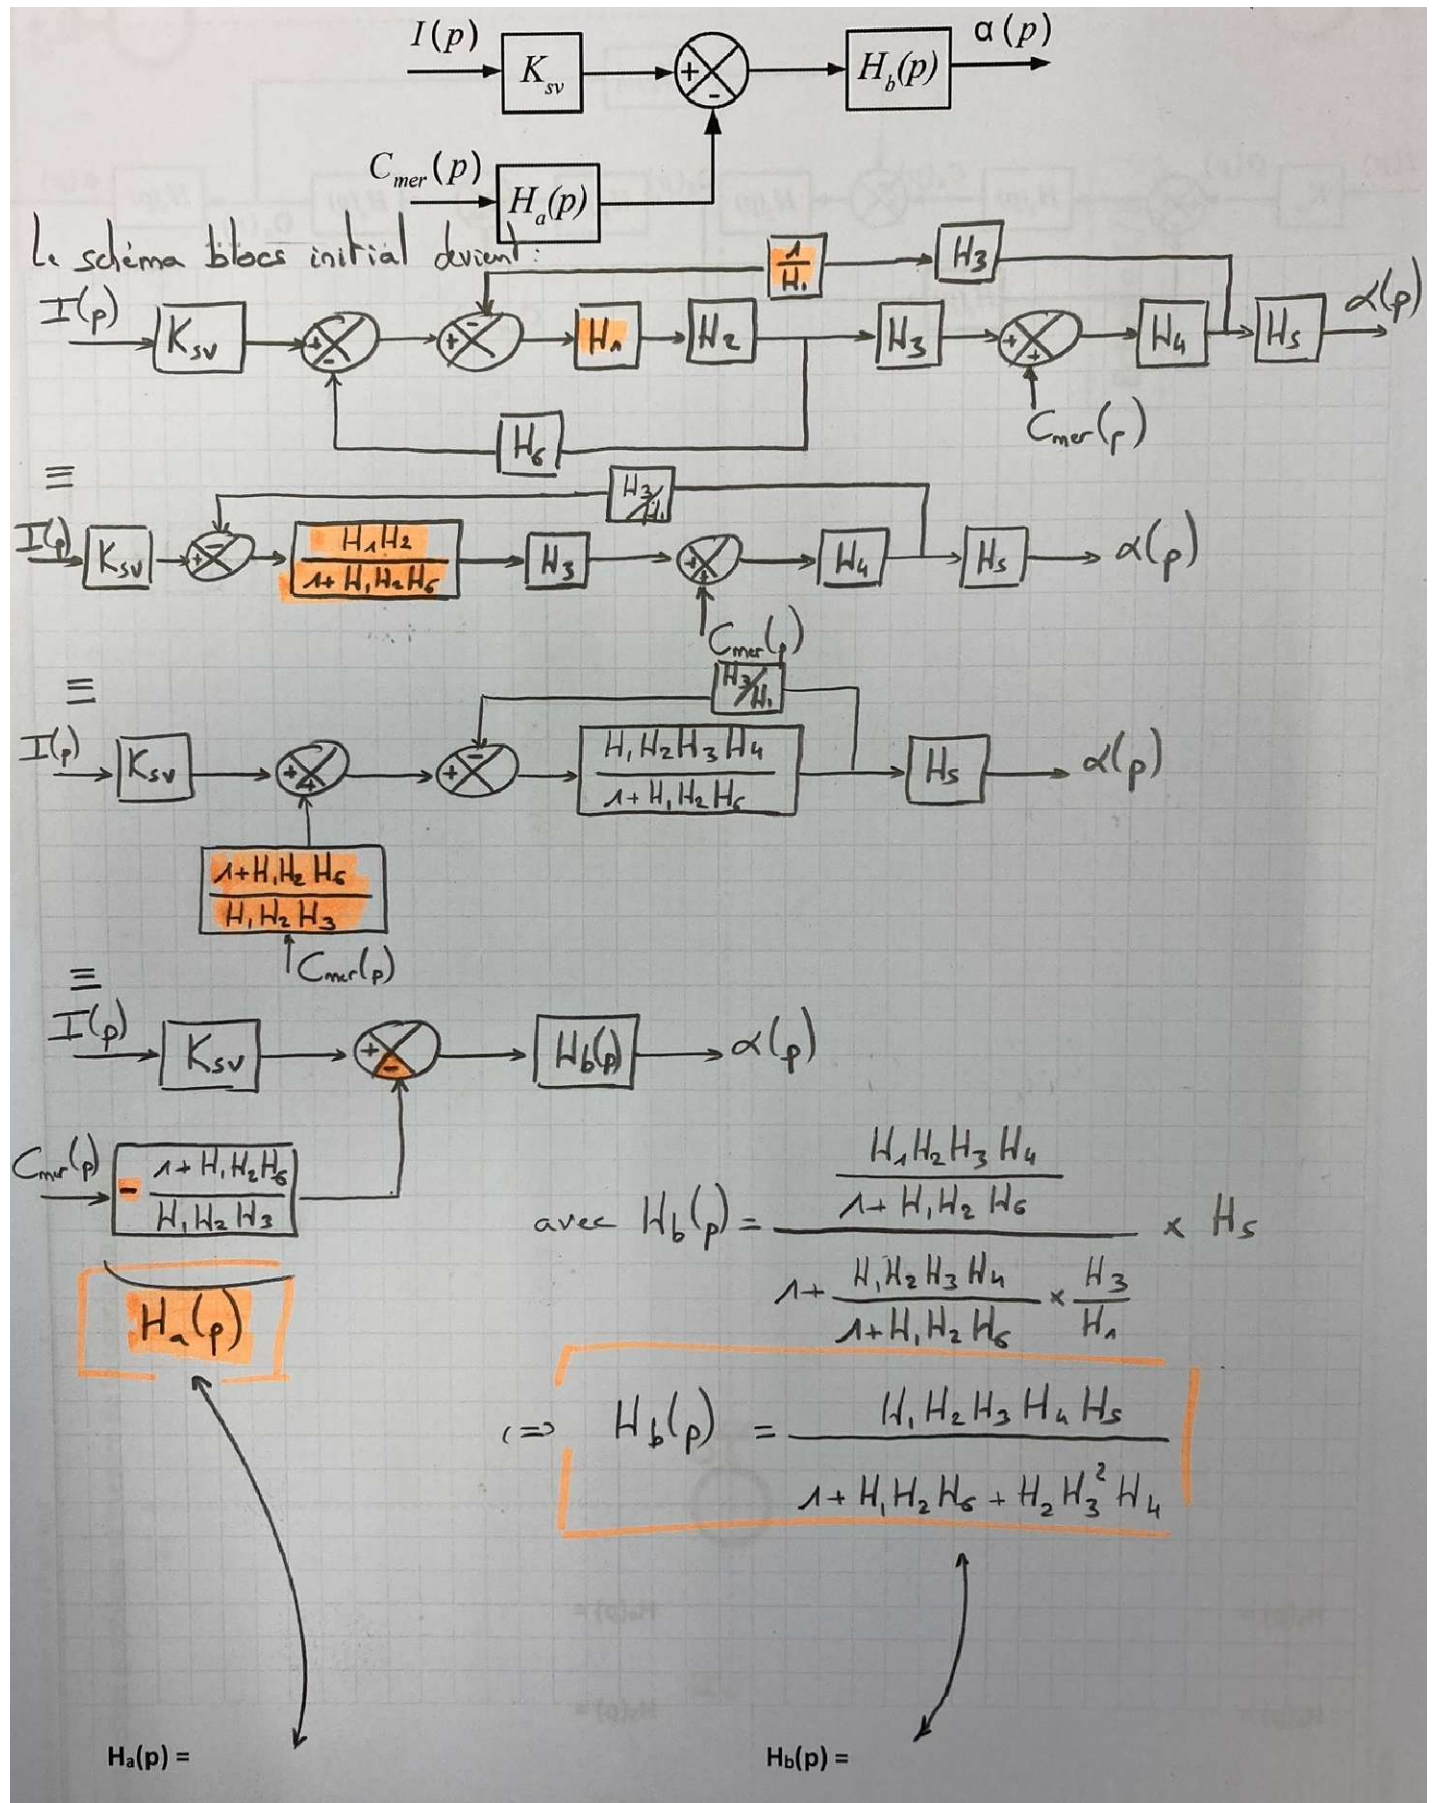 I(p) K_sv + - H_b(p) α(p)
C_mer(p) H_a(p)
Le schéma blocs initial devient :
1/H₁ H₃
I(p) K_sv + - + - H₁ H₂ H₃ + + H₄ H₅ α(p)
H₆ C_mer(p)
≡
H₃/H₁
I(p) K_sv + - H₁H₂/(1+H₁H₂H₆) H₃ + + H₄ H₅ α(p)
C_mer(p)
≡
H₃/H₁
I(p) K_sv + + + - H₁H₂H₃H₄/(1+H₁H₂H₆) H₅ α(p)
(1+H₁H₂H₆)/(H₁H₂H₃)
C_mer(p)
≡
I(p) K_sv + - H_b(p) α(p)
C_mer(p) - (1+H₁H₂H₆)/(H₁H₂H₃)
H_a(p)
avec H_b(p) = (H₁H₂H₃H₄/(1+H₁H₂H₆))/(1+ H₁H₂H₃H₄/(1+H₁H₂H₆) × H₃/H₁) × H₅
(=> H_b(p) = H₁H₂H₃H₄H₅/(1+H₁H₂H₆+H₂H₃²H₄)
Ha(p) = Hb(p) =